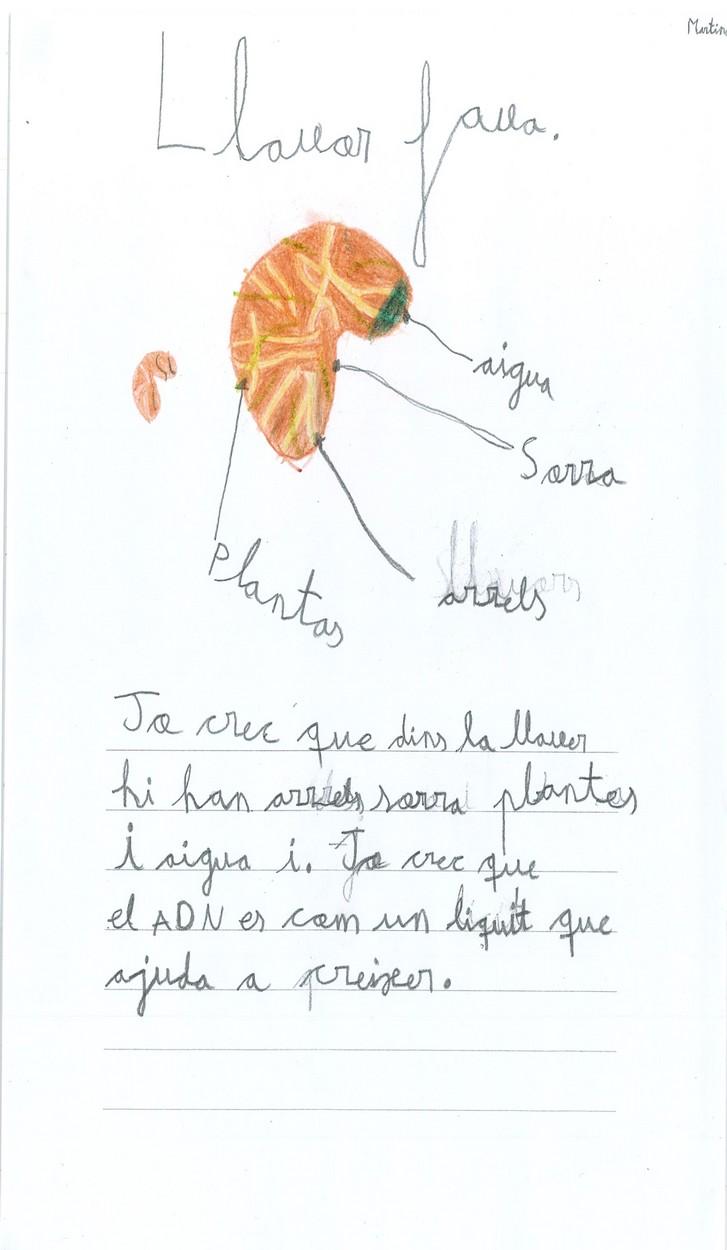 Martin
Llavor fava.
aigua
Sorra
Plantas
arrels
Jo crec que dins la llavor
hi han arrels sorra plantes
i aigua i. Jo crec que
el ADN es com un liquit que
ajuda a creixer.